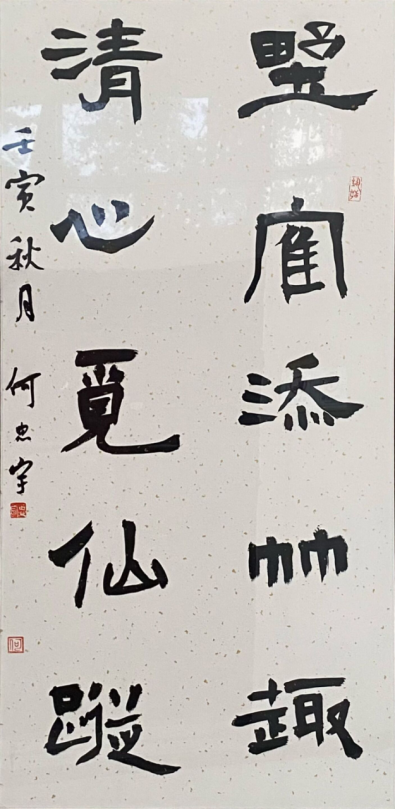 野隺添竹趣
清心覓仙蹤
壬寅秋月 何忠宇